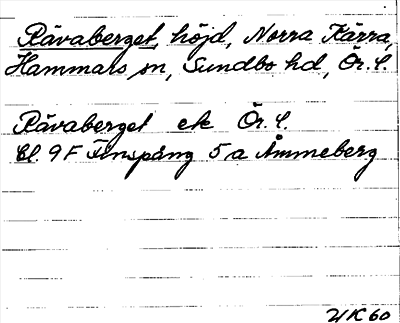 Rävaberget, höjd, Norra Kärra,
Hammars sn, Sundbo hd, Ör. l.
Rävaberget ek Ör. l.
Bl. 9 F Finspång 5 a Åmmeberg
UK 60